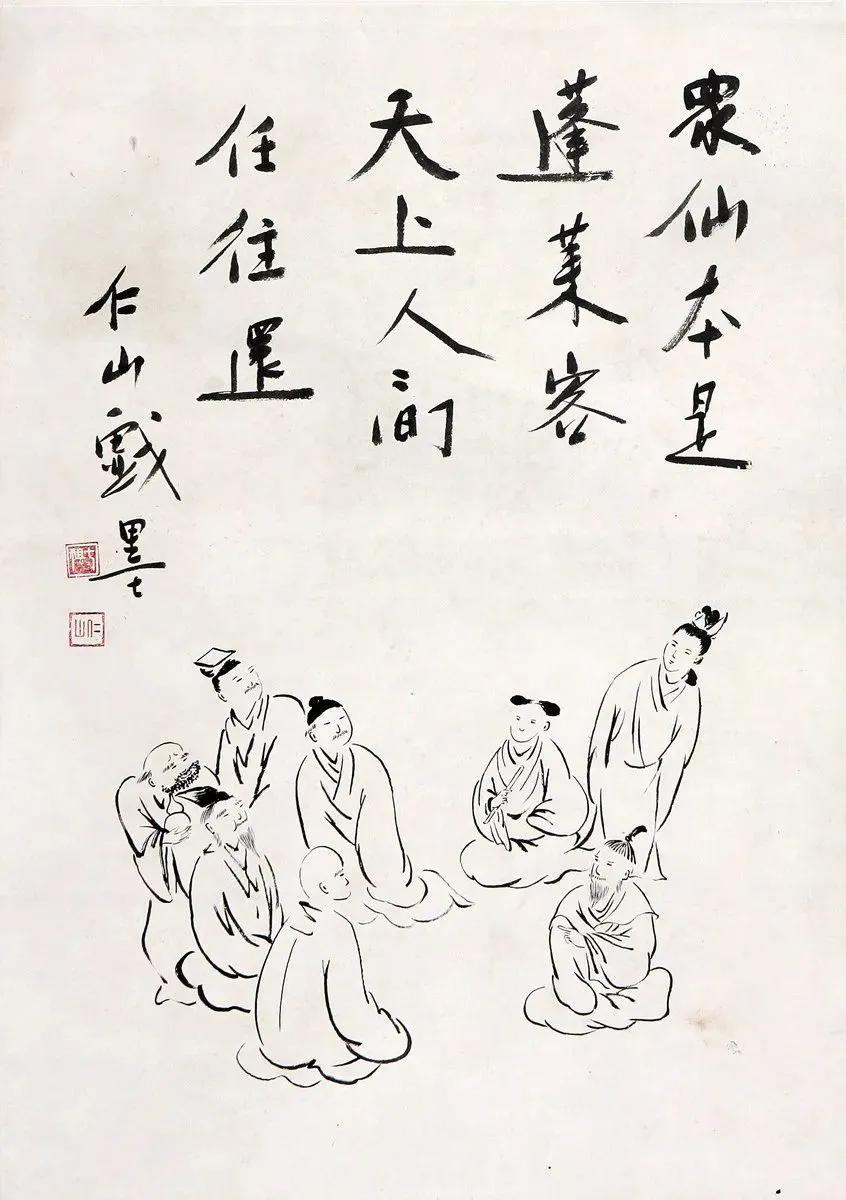 眾仙本是
蓬萊客
天上人間
任往還
仁山戲墨
仁山